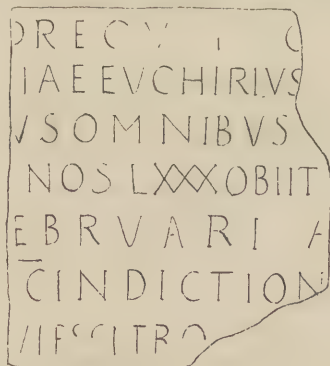 ORECV
IAEEVCHIRIVS
VSOMNIBVS
NOSLXXXOBIIT
EBRVARI A
CINDICTION